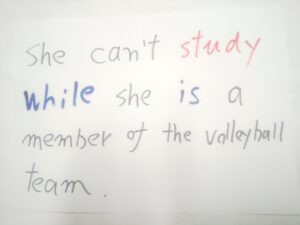 She can't study
while she is a
member of the volleyball
team.